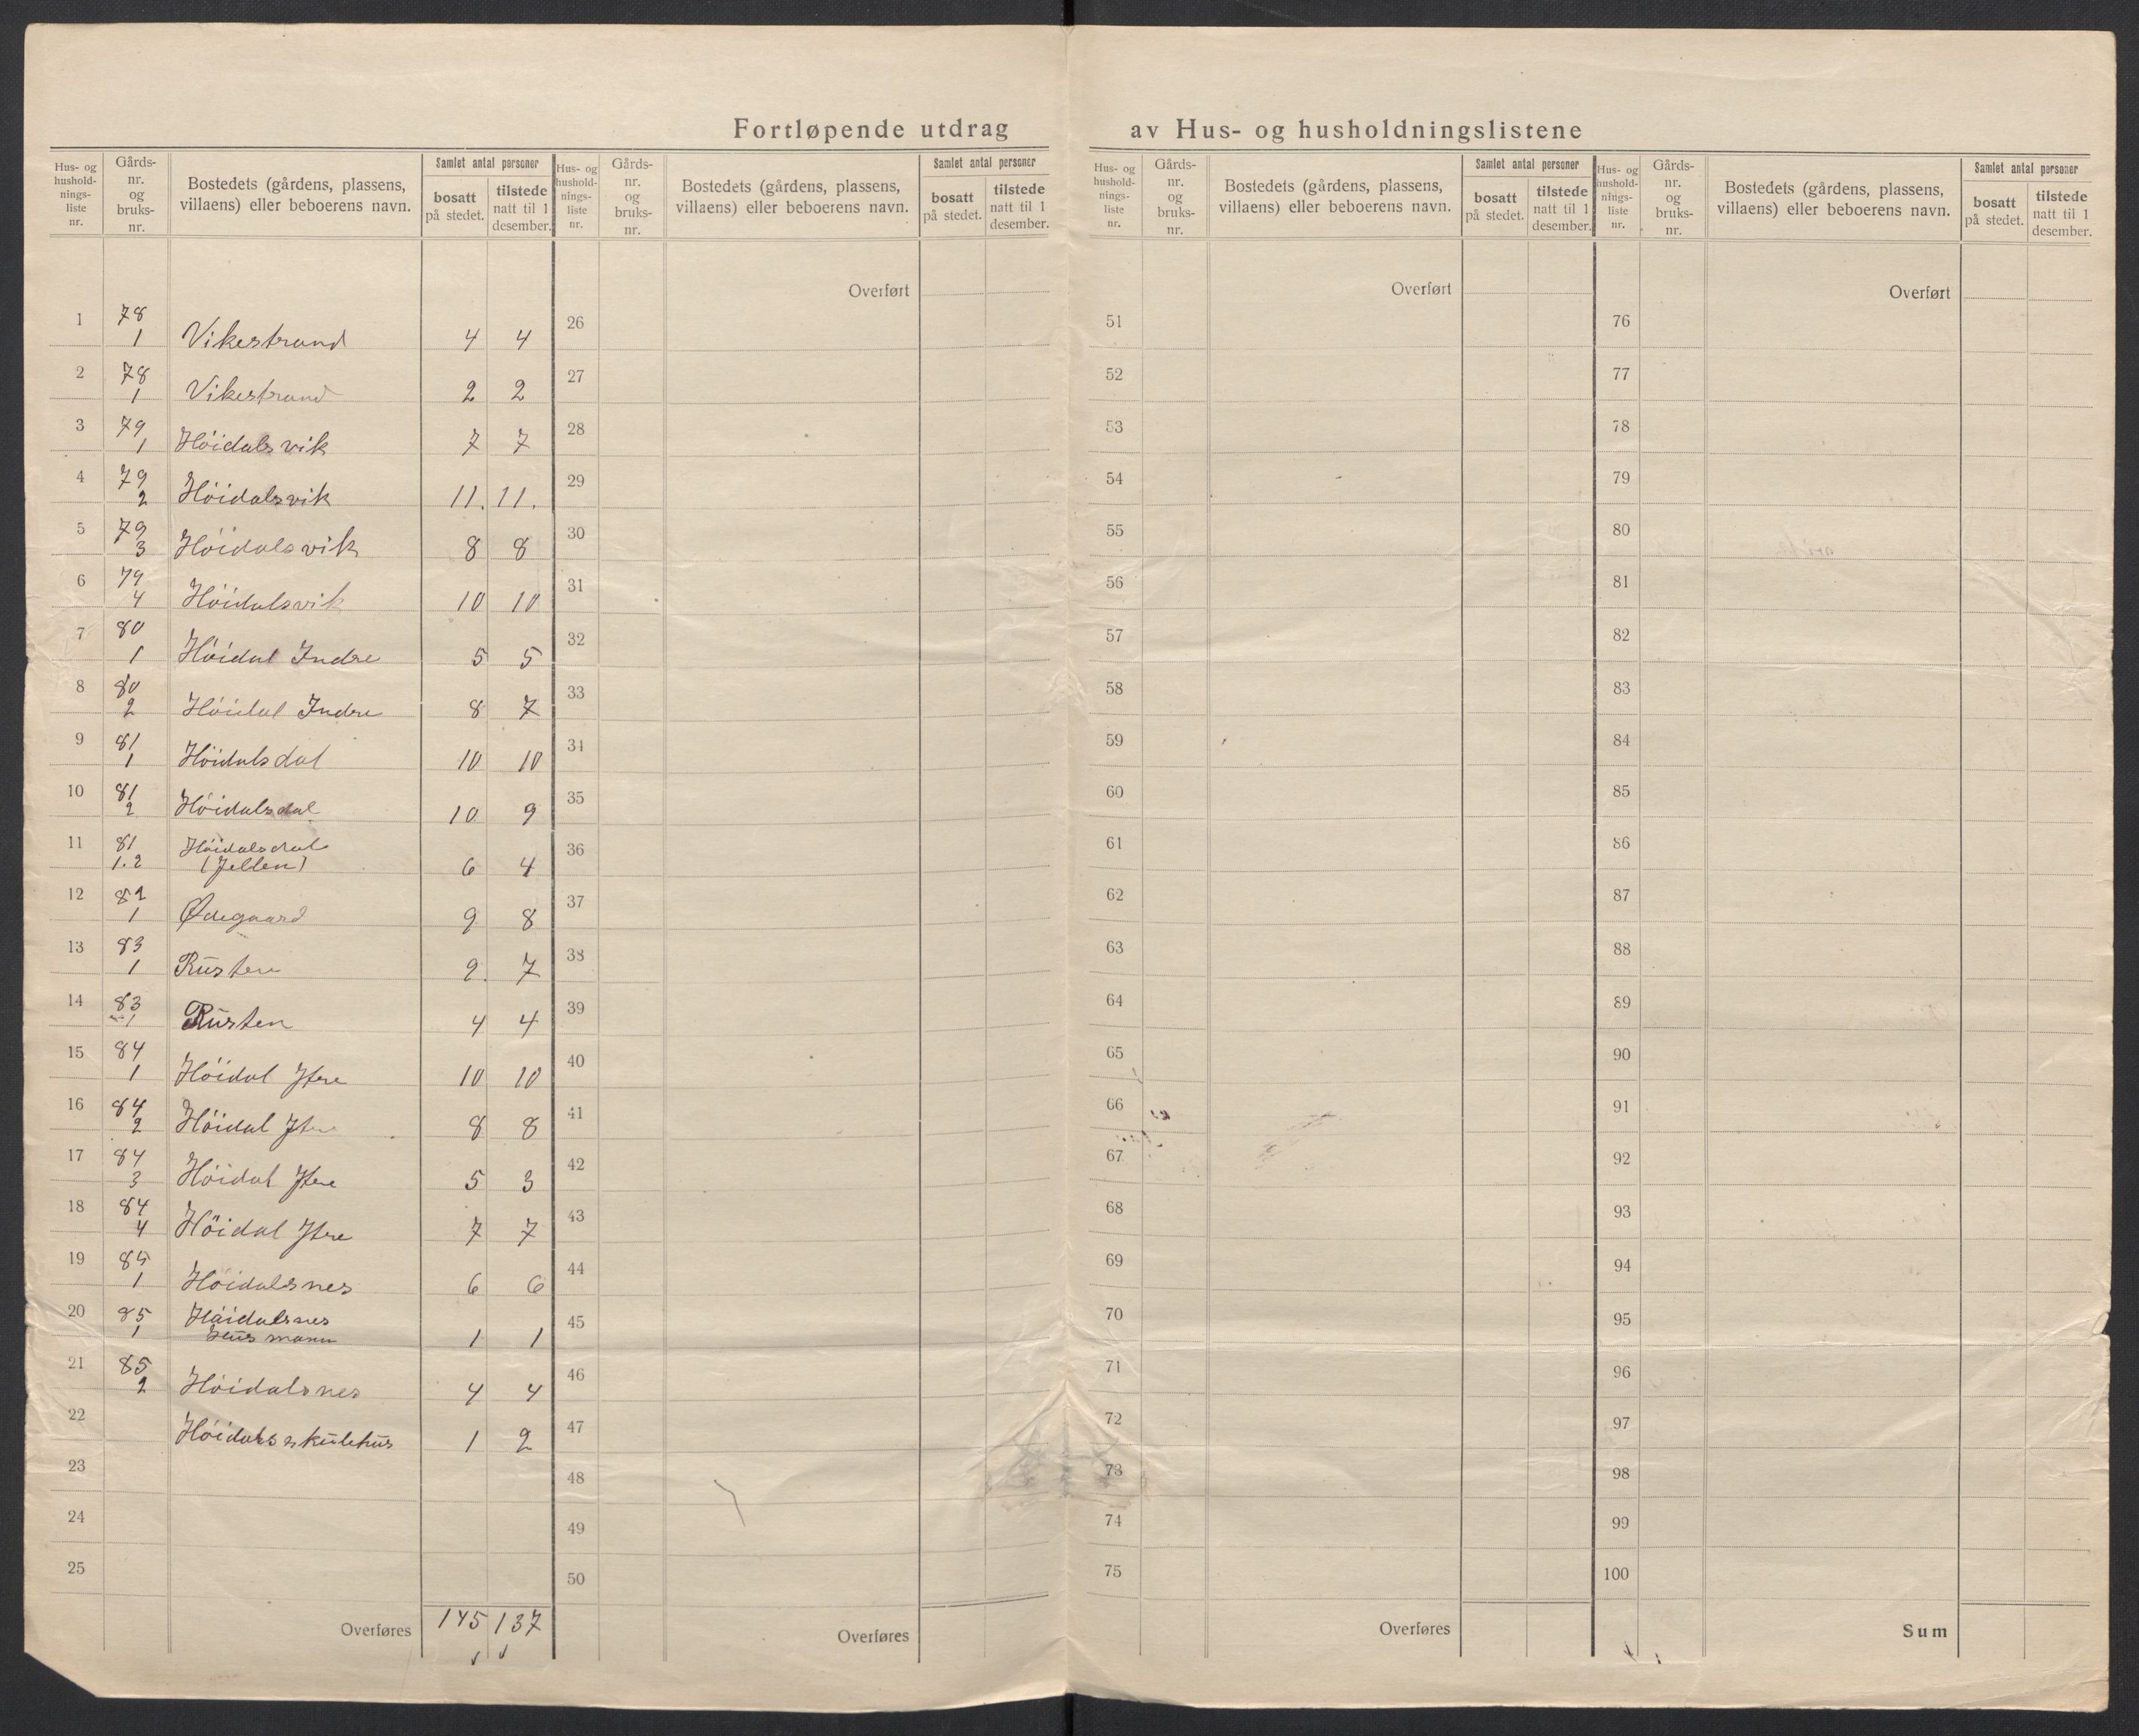 Fortløpende utdrag av Hus- og husholdningslistene
Hus- og hushold-nings-liste nr. Gårds-nr. og bruks-nr. Bostedets (gårdens, plassens, villaens) eller beboerens navn. Samlet antal personer bosatt på stedet. tilstede natt til 1 desember.
Hus- og hushold-nings-liste nr. Gårds-nr. og bruks-nr. Bostedets (gårdens, plassens, villaens) eller beboerens navn. Samlet antal personer bosatt på stedet. tilstede natt til 1 desember.
Hus- og hushold-nings-liste nr. Gårds-nr. og bruks-nr. Bostedets (gårdens, plassens, villaens) eller beboerens navn. Samlet antal personer bosatt på stedet. tilstede natt til 1 desember.
Hus- og hushold-nings-liste nr. Gårds-nr. og bruks-nr. Bostedets (gårdens, plassens, villaens) eller beboerens navn. Samlet antal personer bosatt på stedet. tilstede natt til 1 desember.
1 78 1 Vikestrand 4 4
2 78 1 Vikestrand 2 2
3 79 1 Höidalsvik 7 7
4 79 2 Höidalsvik 11. 11.
5 79 3 Höidalsvik 8 8
6 79 4 Höidalsvik 10 10
7 80 1 Höidal Indre 5 5
8 80 2 Höidal Indre 8 7
9 81 1 Höidalsdal 10 10
10 81 2 Höidalsdal 10 9
11 81 1.2 Höidalsdal
(Jellen) 6 4
12 82 1 Ødegaard 9 8
13 83 1 Rusten 9. 7
14 83 1 Rusten 4 4
15 84 1 Höidal Ytre 10 10
16 84 2 Höidal Ytre 8 8
17 84 3 Höidal Ytre 5 3
18 84 4 Höidal Ytre 7 7
19 85 1 Höidalsnes 6 6
20 85 1 Höidalsnes
Husmann 1 1
21 85 2 Höidalsnes 4 4
22 Höidals skulehus 1 2
23
24
25
Overføres 145 137
Overført
26
27
28
29
30
31
32
33
34
35
36
37
38
39
40
41
42
43
44
45
46
47
48
49
50
Overføres
Overført
51
52
53
54
55
56
57
58
59
60
61
62
63
64
65
66
67
68
69
70
71
72
73
74
75
Overføres
Overført
76
77
78
79
80
81
82
83
84
85
86
87
88
89
90
91
92
93
94
95
96
97
98
99
100
Sum